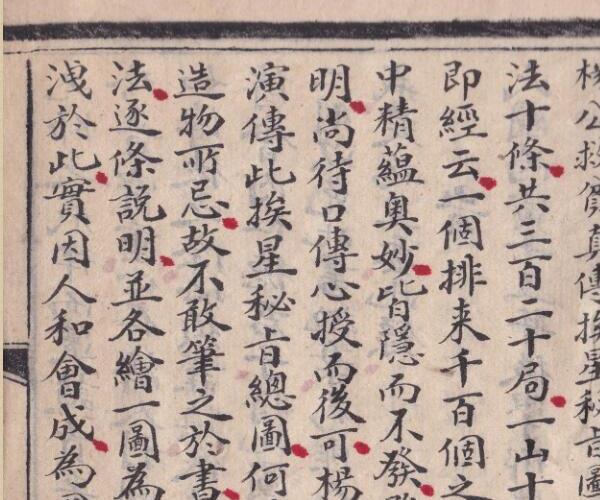 公救貧真傳挨星秘旨圖
法十條共三百二十局一山十
即經云一個排来千百個之
中精蘊奥妙皆隱而不發
明尚待口傳心授而後可楊
演傳此挨星秘旨總圖何
造物所忌故不敢筆之於書
法逐條説明並各繪一圖為
洩於此實因人和會成為